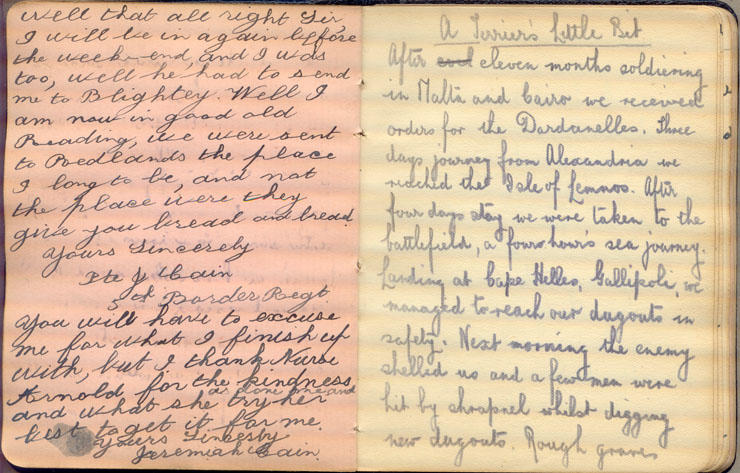 Well that all right Sir,
I will be in again before
the week-end, and I was
too, well he had to send
me to Blightey. Well I
am now in good old
Reading, we were sent
to Redlands the place
I long to be, and not
the place were they
give you bread and bread
Yours Sincerely
Pte J. Cain
Border Regt
You will have to excuse
me for what I finish up
with, but I thank Nurse
Arnold, for the kindness
as done me and
and what she try her
best to get it for me.
Yours Sincesly
Jeremiah Cain.
A Terrier's Little Bit
After eleven months soldiering
in Malta and Cairo we received
orders for the Dardanelles. Three
days journey from Alexandria we
reached the Isle of Lemnos. After
four days stay we were taken to the
battlefield, a fours hour's sea journey.
Landing at Cape Helles, Gallipoli, we
managed to reach our dugouts in
safety. Next morning the enemy
shelled us and a few men were
hit by shrapnel whilst digging
new dugouts. Rough graves